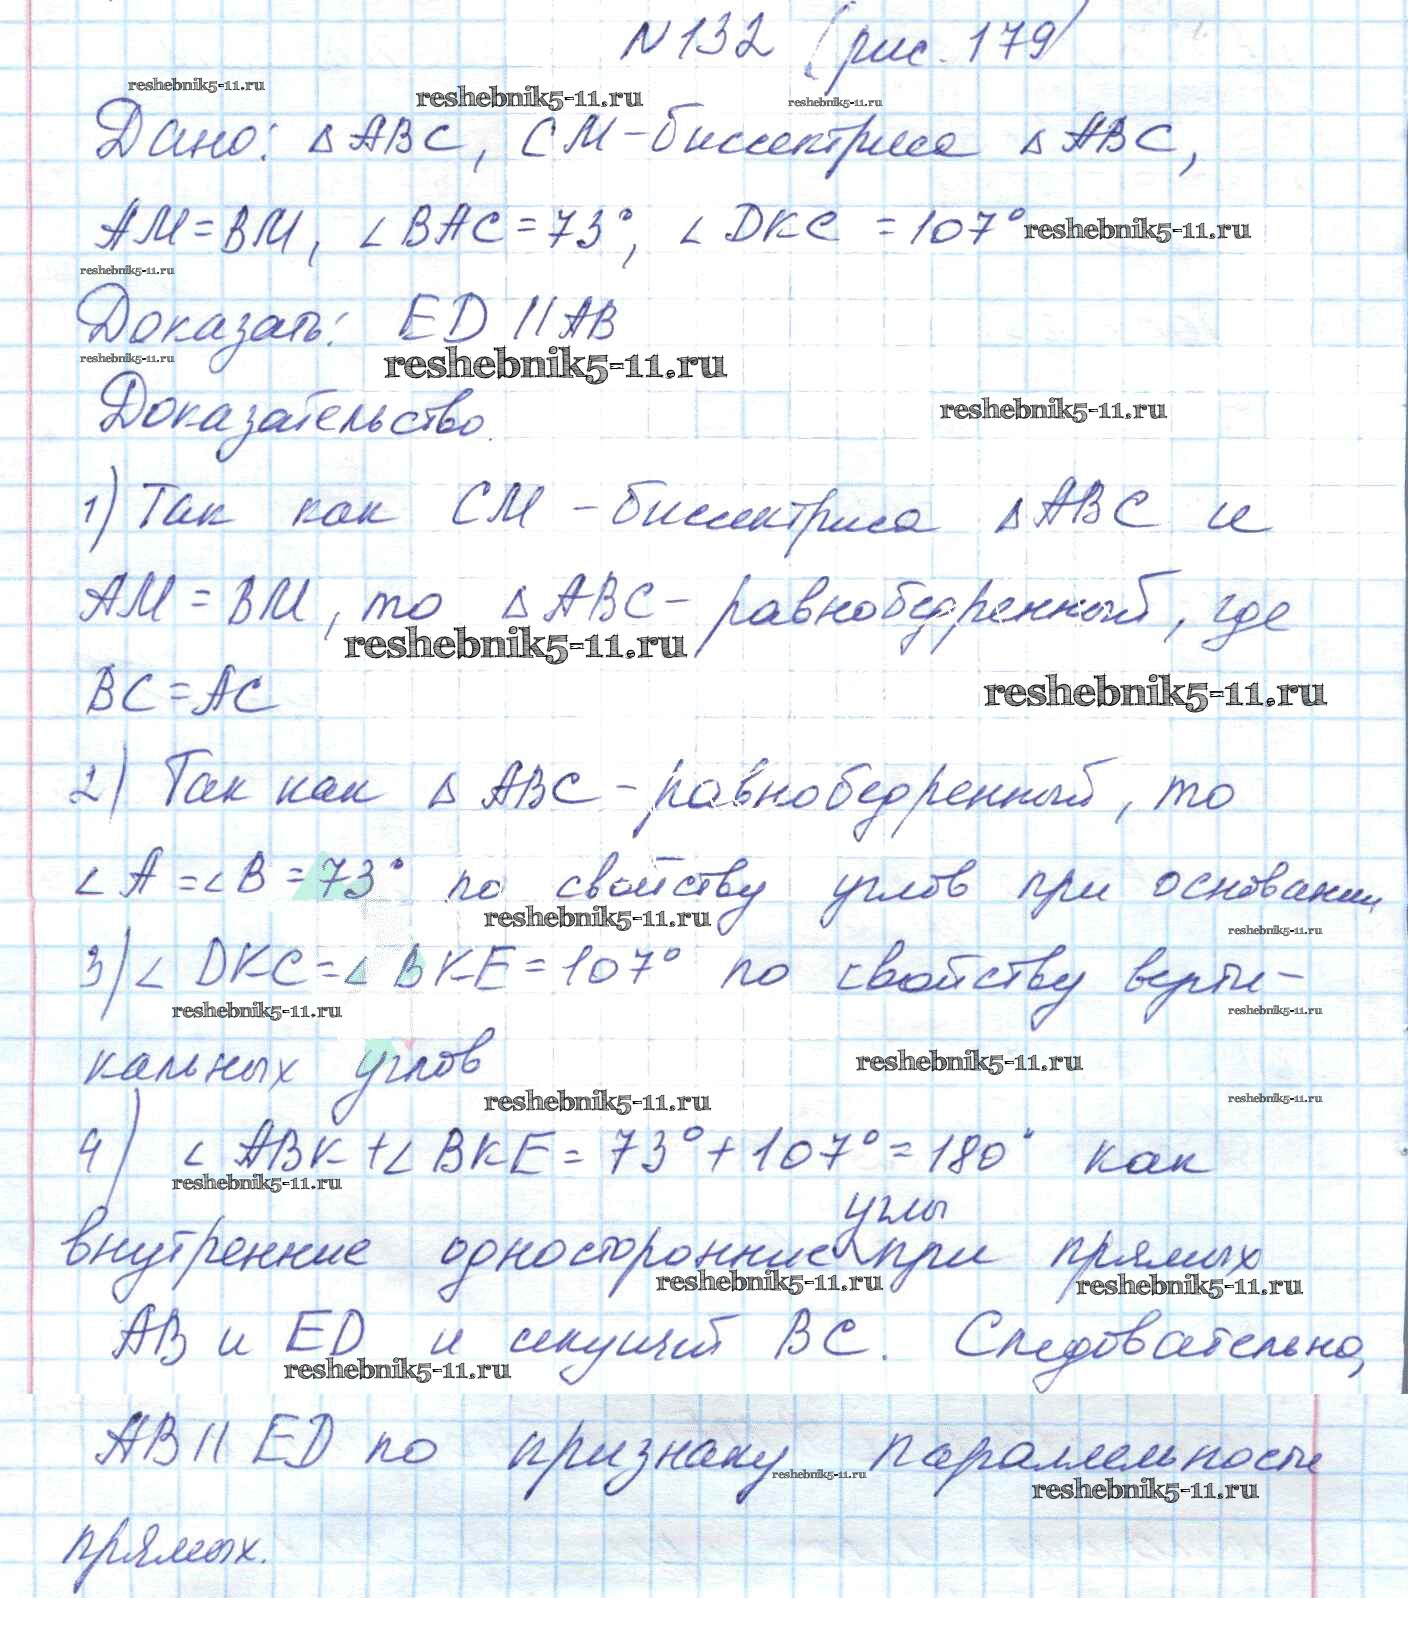 N132 (рис. 179)
reshebnik5-11.ru reshebnik5-11.ru reshebnik5-11.ru
Дано: △ABC, CM-биссектриса △ABC,
AM=BM, ∠BAC=73°, ∠DKC=107° reshebnik5-11.ru
reshebnik5-11.ru
Доказать: ED || AB
reshebnik5-11.ru reshebnik5-11.ru
Доказательство.
reshebnik5-11.ru
1) Так как CM - биссектриса △ABC и
AM=BM, то △ABC - равнобедренный, где
reshebnik5-11.ru
BC=AC
reshebnik5-11.ru
2) Так как △ABC - равнобедренный, то
∠A=∠B=73° по свойству углов при основании
reshebnik5-11.ru reshebnik5-11.ru
3) ∠DKC=∠BKE=107° по свойству верти-
reshebnik5-11.ru reshebnik5-11.ru
кальных углов
reshebnik5-11.ru
reshebnik5-11.ru reshebnik5-11.ru
4) ∠ABK+∠BKE=73°+107°=180° как
reshebnik5-11.ru
углы
внутренние односторонние при прямых
reshebnik5-11.ru reshebnik5-11.ru
AB и ED и секущей BC. Следовательно,
reshebnik5-11.ru
AB || ED по признаку параллельности
reshebnik5-11.ru reshebnik5-11.ru
прямых.